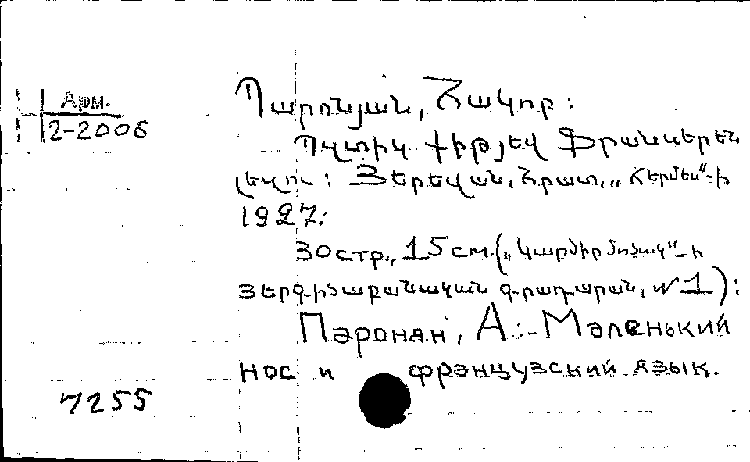 Арм.
2-2006
Պարոնյան, Հակոբ:
Պզտիկ քիթ եվ Ֆրանսերեն
լեզու: Յերեվան, Հրատ. „Հերմես“-ի
1927:
30 стр., 15 см. („Կարմիր մոծակ“-ի
յերգիծաբանական գրադարան, № 1):
Паронян, А.:- Маленький
нос и французский язык.
7255